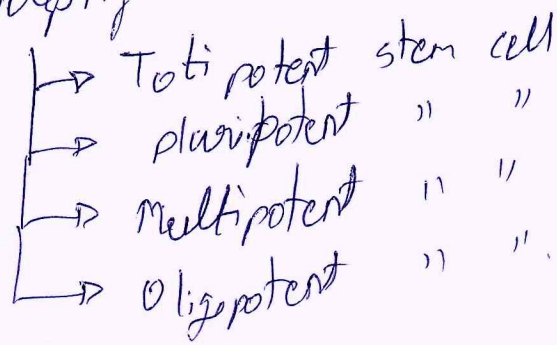 → Totipotent stem cell
→ pluripotent " "
→ Multipotent " "
→ Oligopotent " ".